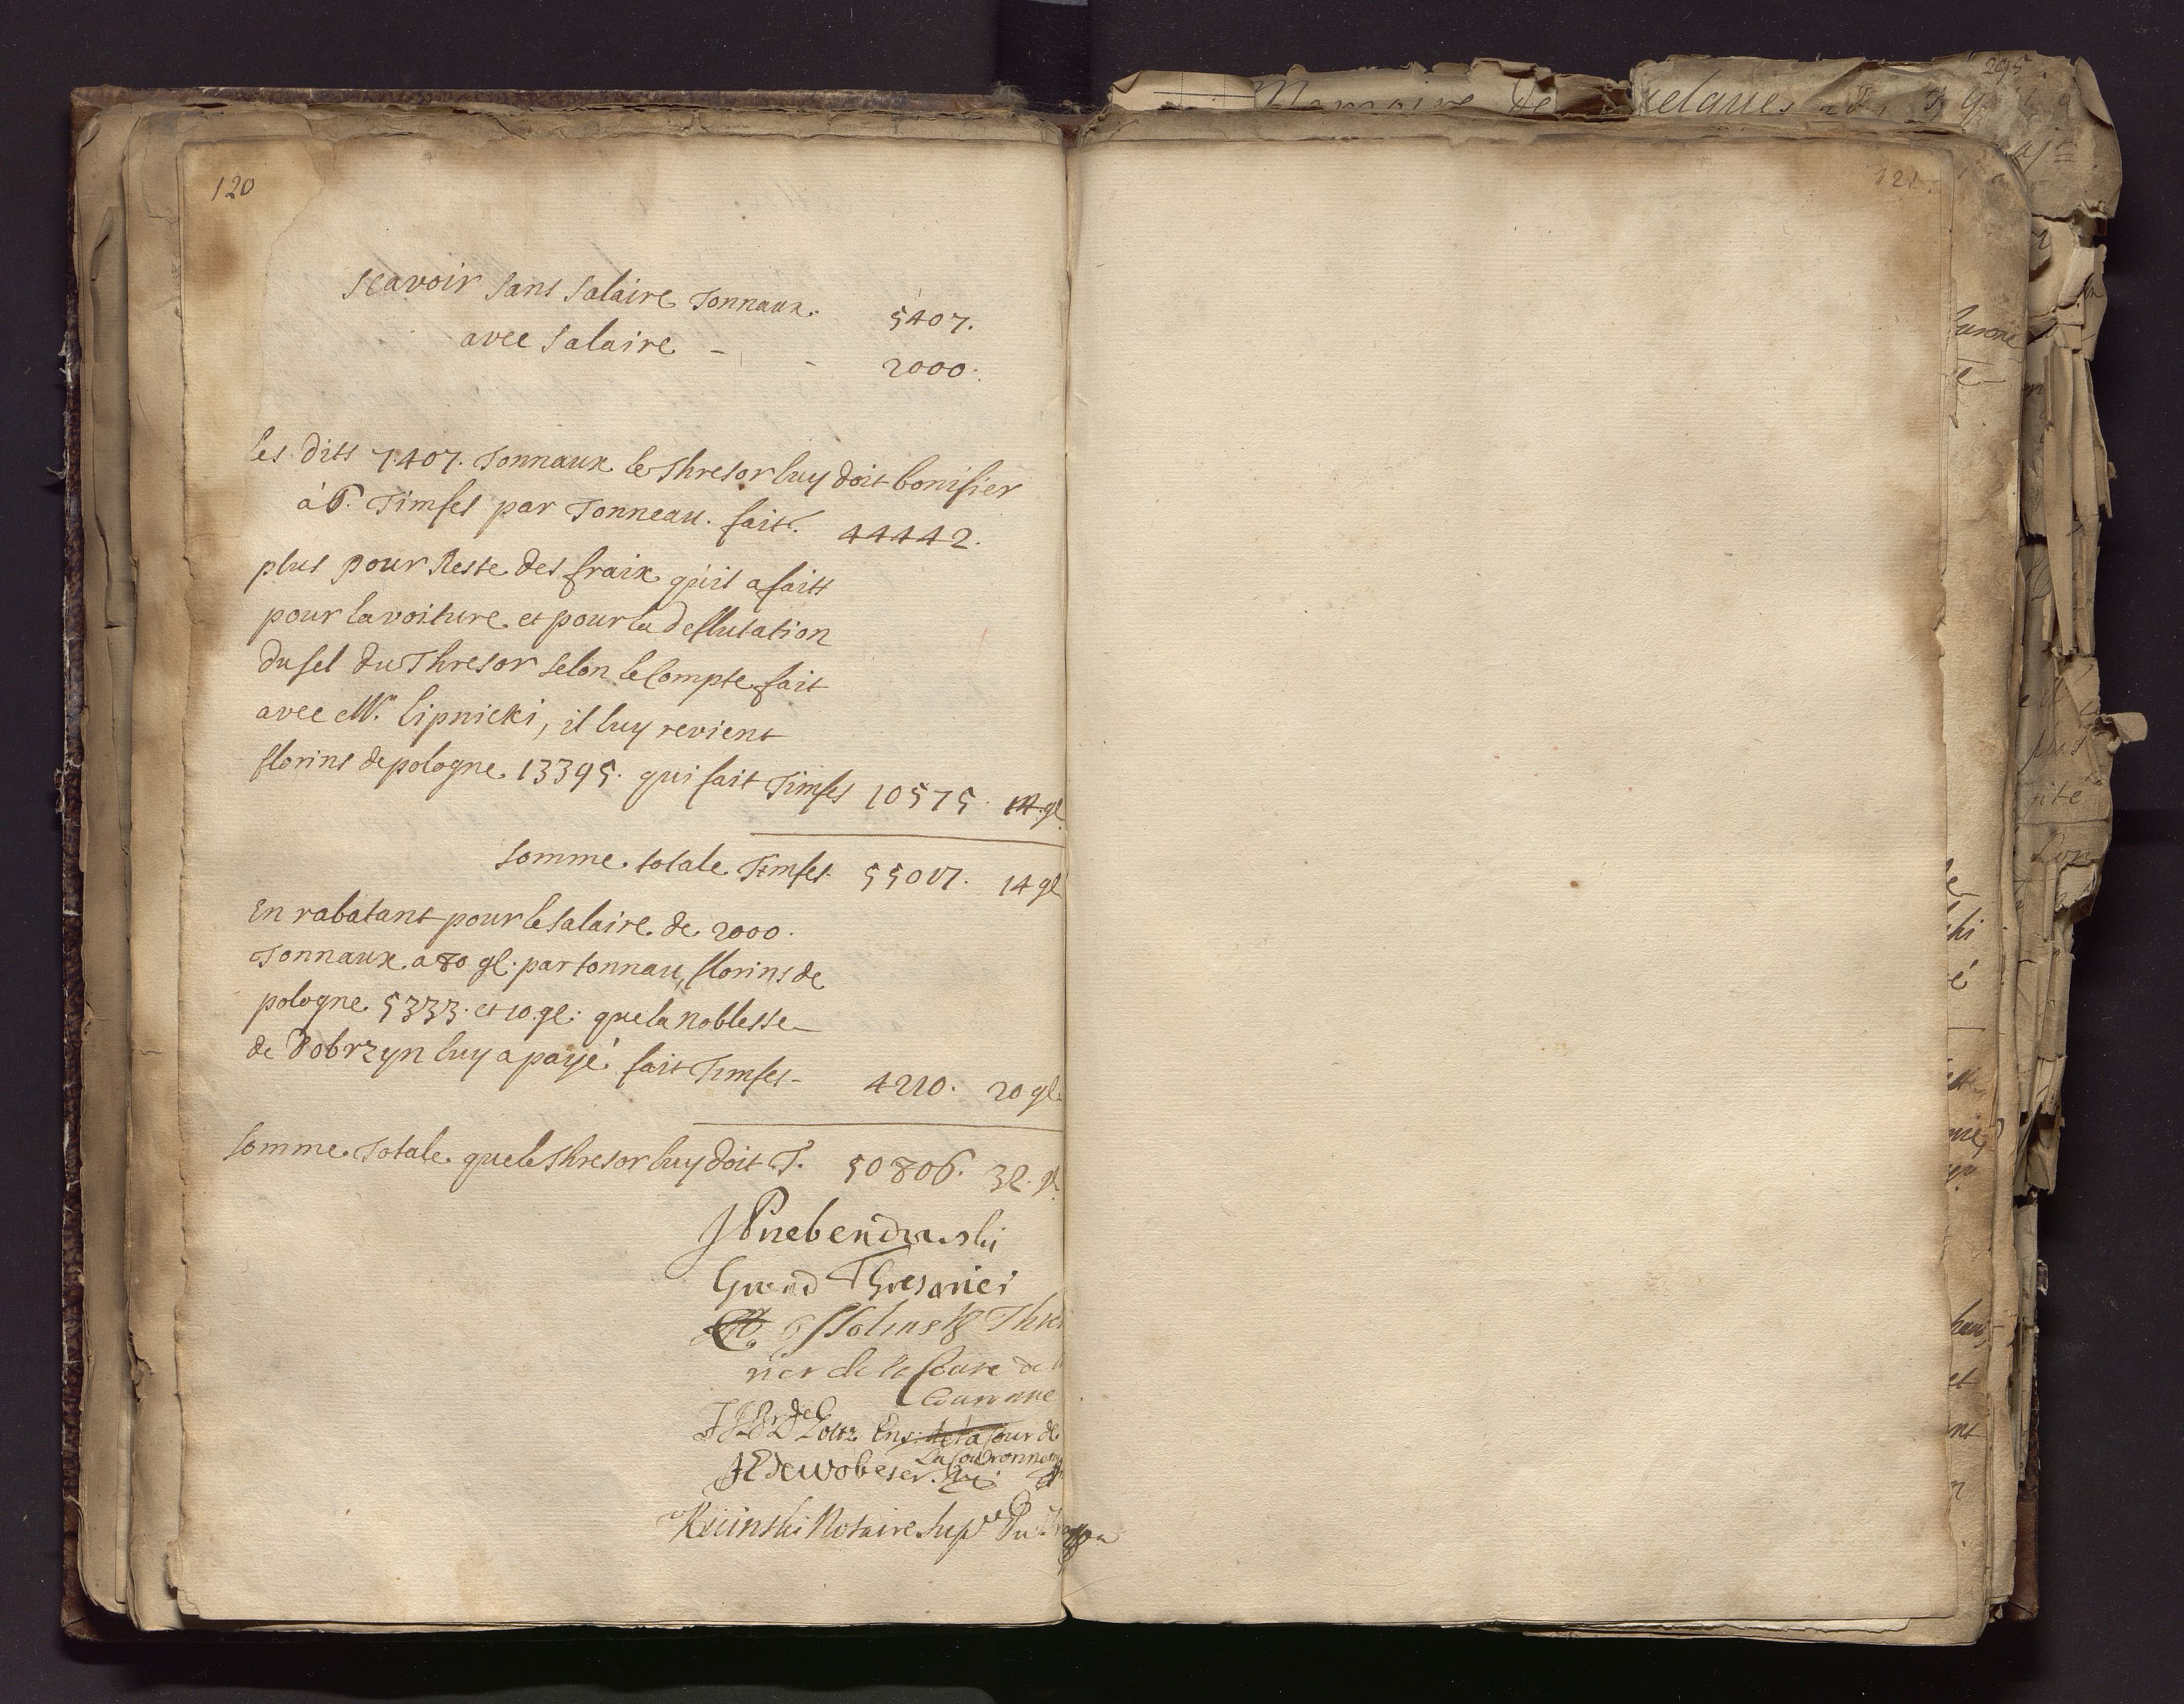 120
Scavoir Sans Salaire Tonnaux. 5407.
avec Salaire - - 2000.
les dits 7407. Tonnaux le Thresor luy doit bonifier
à 6. Timfes par Tonneau. fait. 44442.
plus pour Reste des fraix qu'il a faitt
pour la voiture et pour la desflutation
du sel du Thresor selon le Compte fait
avec Mr. Lipnicki, il luy revient
florins de pologne 13395. qui fait Timfes 10575. 14. gl.
Somme totale Timfes 55017. 14 gl
En rabatant pour le Salaire de 2000.
Tonnaux a 80 gl. par tonnau, florins de
pologne 5333. et 10. gl: que la noblesse
de Dobrzyn luy a payé fait Timfes - 4210. 20 gl.
Somme Totale que le Thresor luy doit T. 50806. 32. gl.
JPrebendowski
Grand Thresorier
Ossolinsky Thre
rier de la Cour de
Couronne
Goltz Ens: de la Cour de
La Couronne
de Wobeser.
Kicinski Notaire Sup du
121.
Memoire de quelques
295